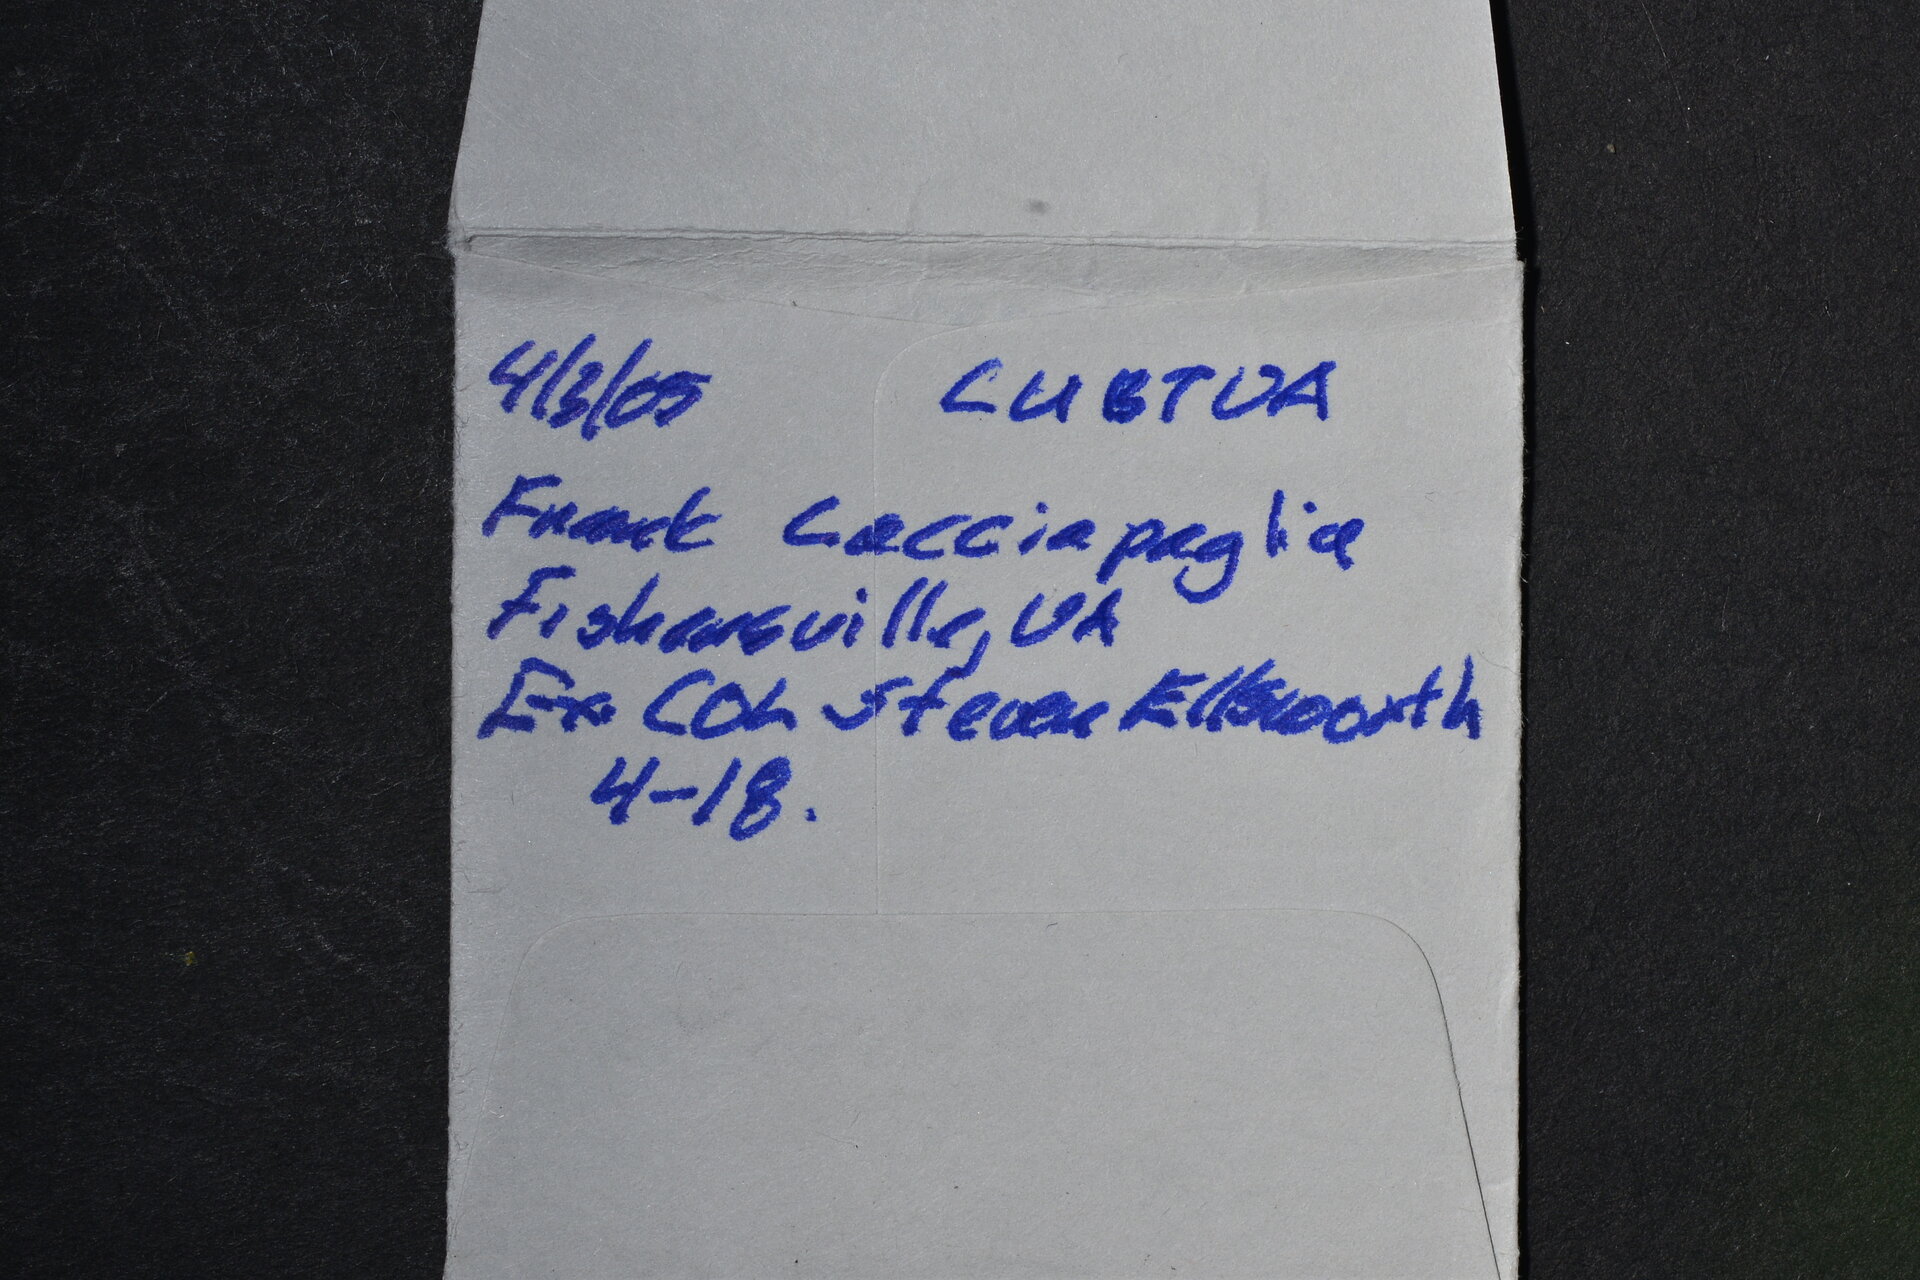 4/3/05 LUBTVA
Frank Cacciapaglia
Fishersville, VA
Ex. COL Steven Ellsworth
4-18.